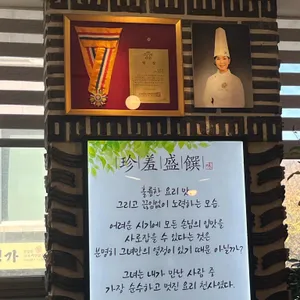 珍羞盛饌
훌륭한 요리 맛
그리고 끊임없이 노력하는 모습
어려운 시기에 모든 손님의 입맛을
사로잡을 수 있다는 것은
분명히 그녀만의 열정이 있기 때문 아닐까?
그녀는 내가 만난 사람 중
가장 순수하고 멋진 요리 천사였다.